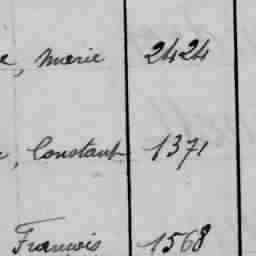 e, Marie 2424
, Constant 1371
François 1568